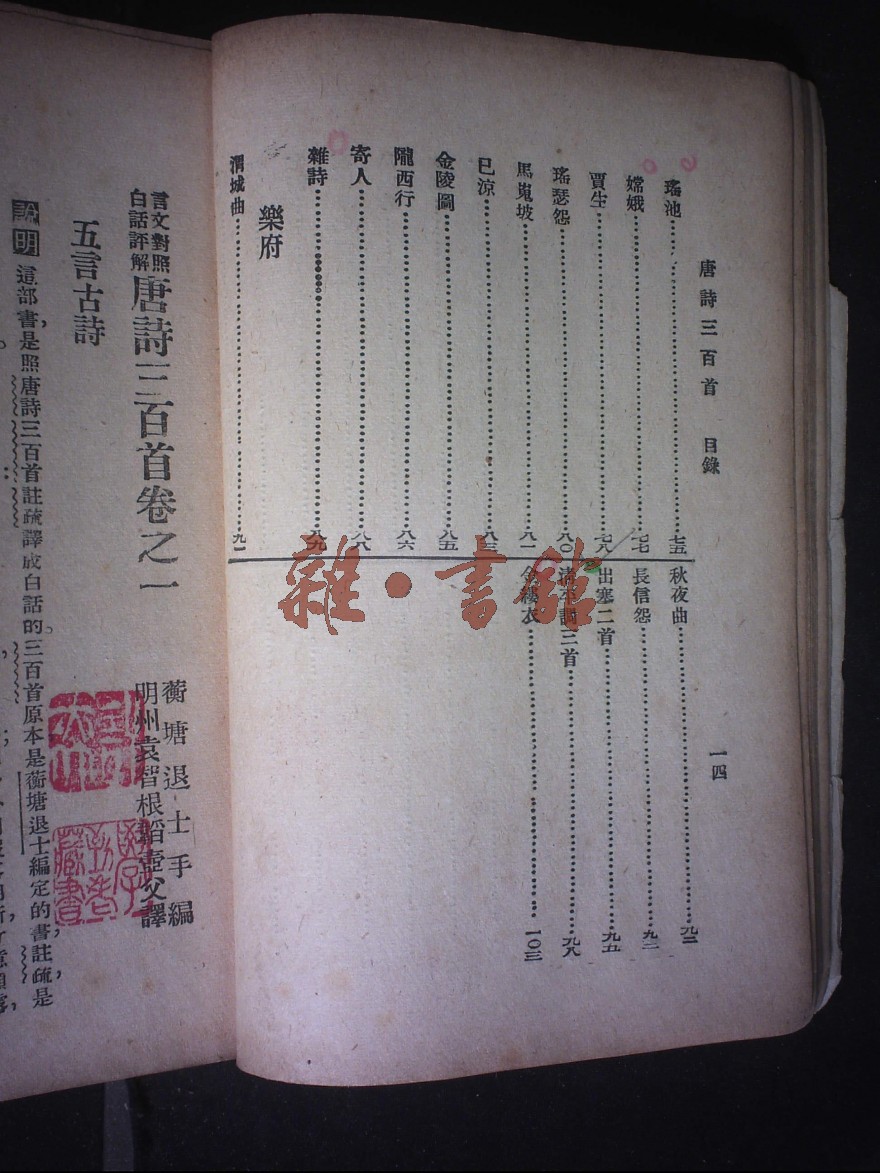 唐詩三百首 目錄
一四
瑤池……七五
嫦娥……七七
賈生……七八
瑤瑟怨……八〇
馬嵬坡……八一
已涼……八三
金陵圖……八五
隴西行……八六
寄人……八八
雜詩……八九
樂府
渭城曲……九一
秋夜曲……九二
長信怨……九二
出塞二首……九五
清平調三首……九八
金縷衣……一〇三
雜·書館
言文對照
白話評解
唐詩三百首卷之一
蘅塘退士手編
明州袁智根韜壺父譯
五言古詩
說明 這部書,是照唐詩三百首註疏譯成白話的。三百首原本是蘅塘退士編定的書,註疏是
藏書